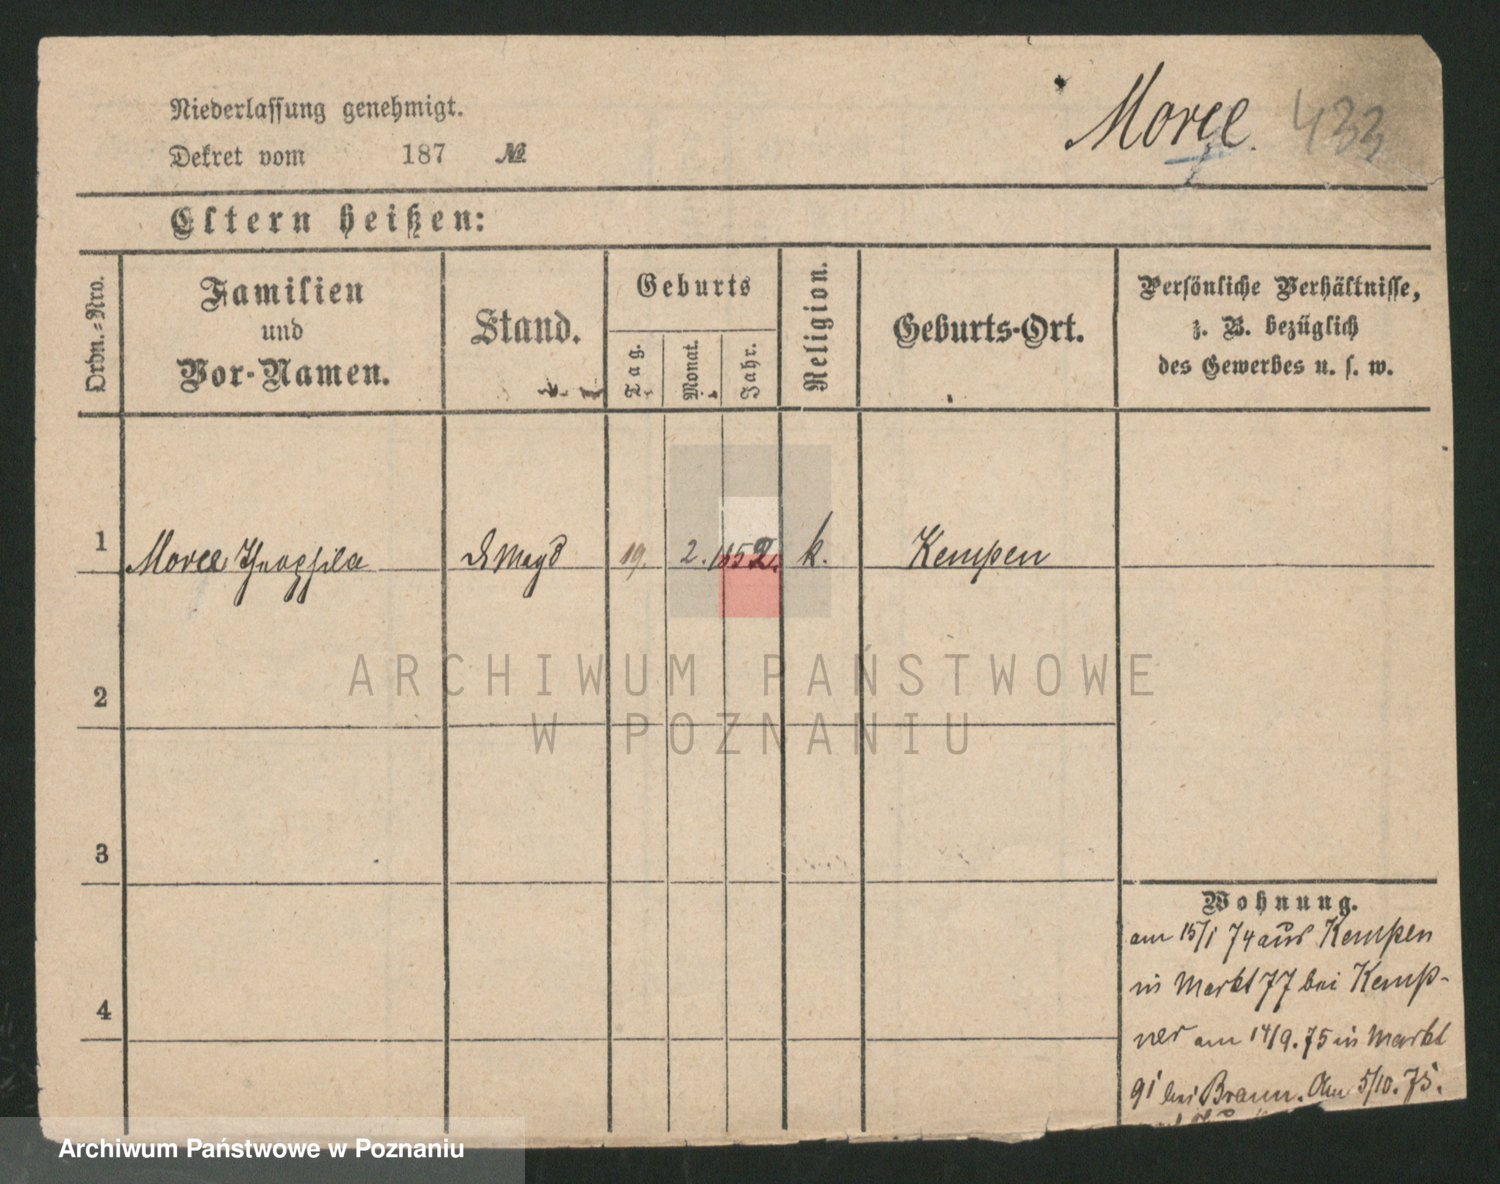 Niederlassung genehmigt.
Dekret vom 187 №
Morce. 433
Eltern heißen:
Ordn.-Nro.
Familien und Vor-Namen.
Stand.
Geburts
Tag.
Monat.
Jahr.
Religion.
Geburts-Ort.
Persönliche Verhältnisse,
z. B. bezüglich
des Gewerbes u. s. w.
1 Morce D Magd 19. 2. 1852. k. Kempen
2
3
4
Wohnung.
am 15/1 74 aus Kempen
in Markt 77 bei Kemp-
ner am 14/9. 75 in Markt
91 bei Braun. Am 5/10. 75.
ARCHIWUM PAŃSTWOWE
W POZNANIU
Archiwum Państwowe w Poznaniu